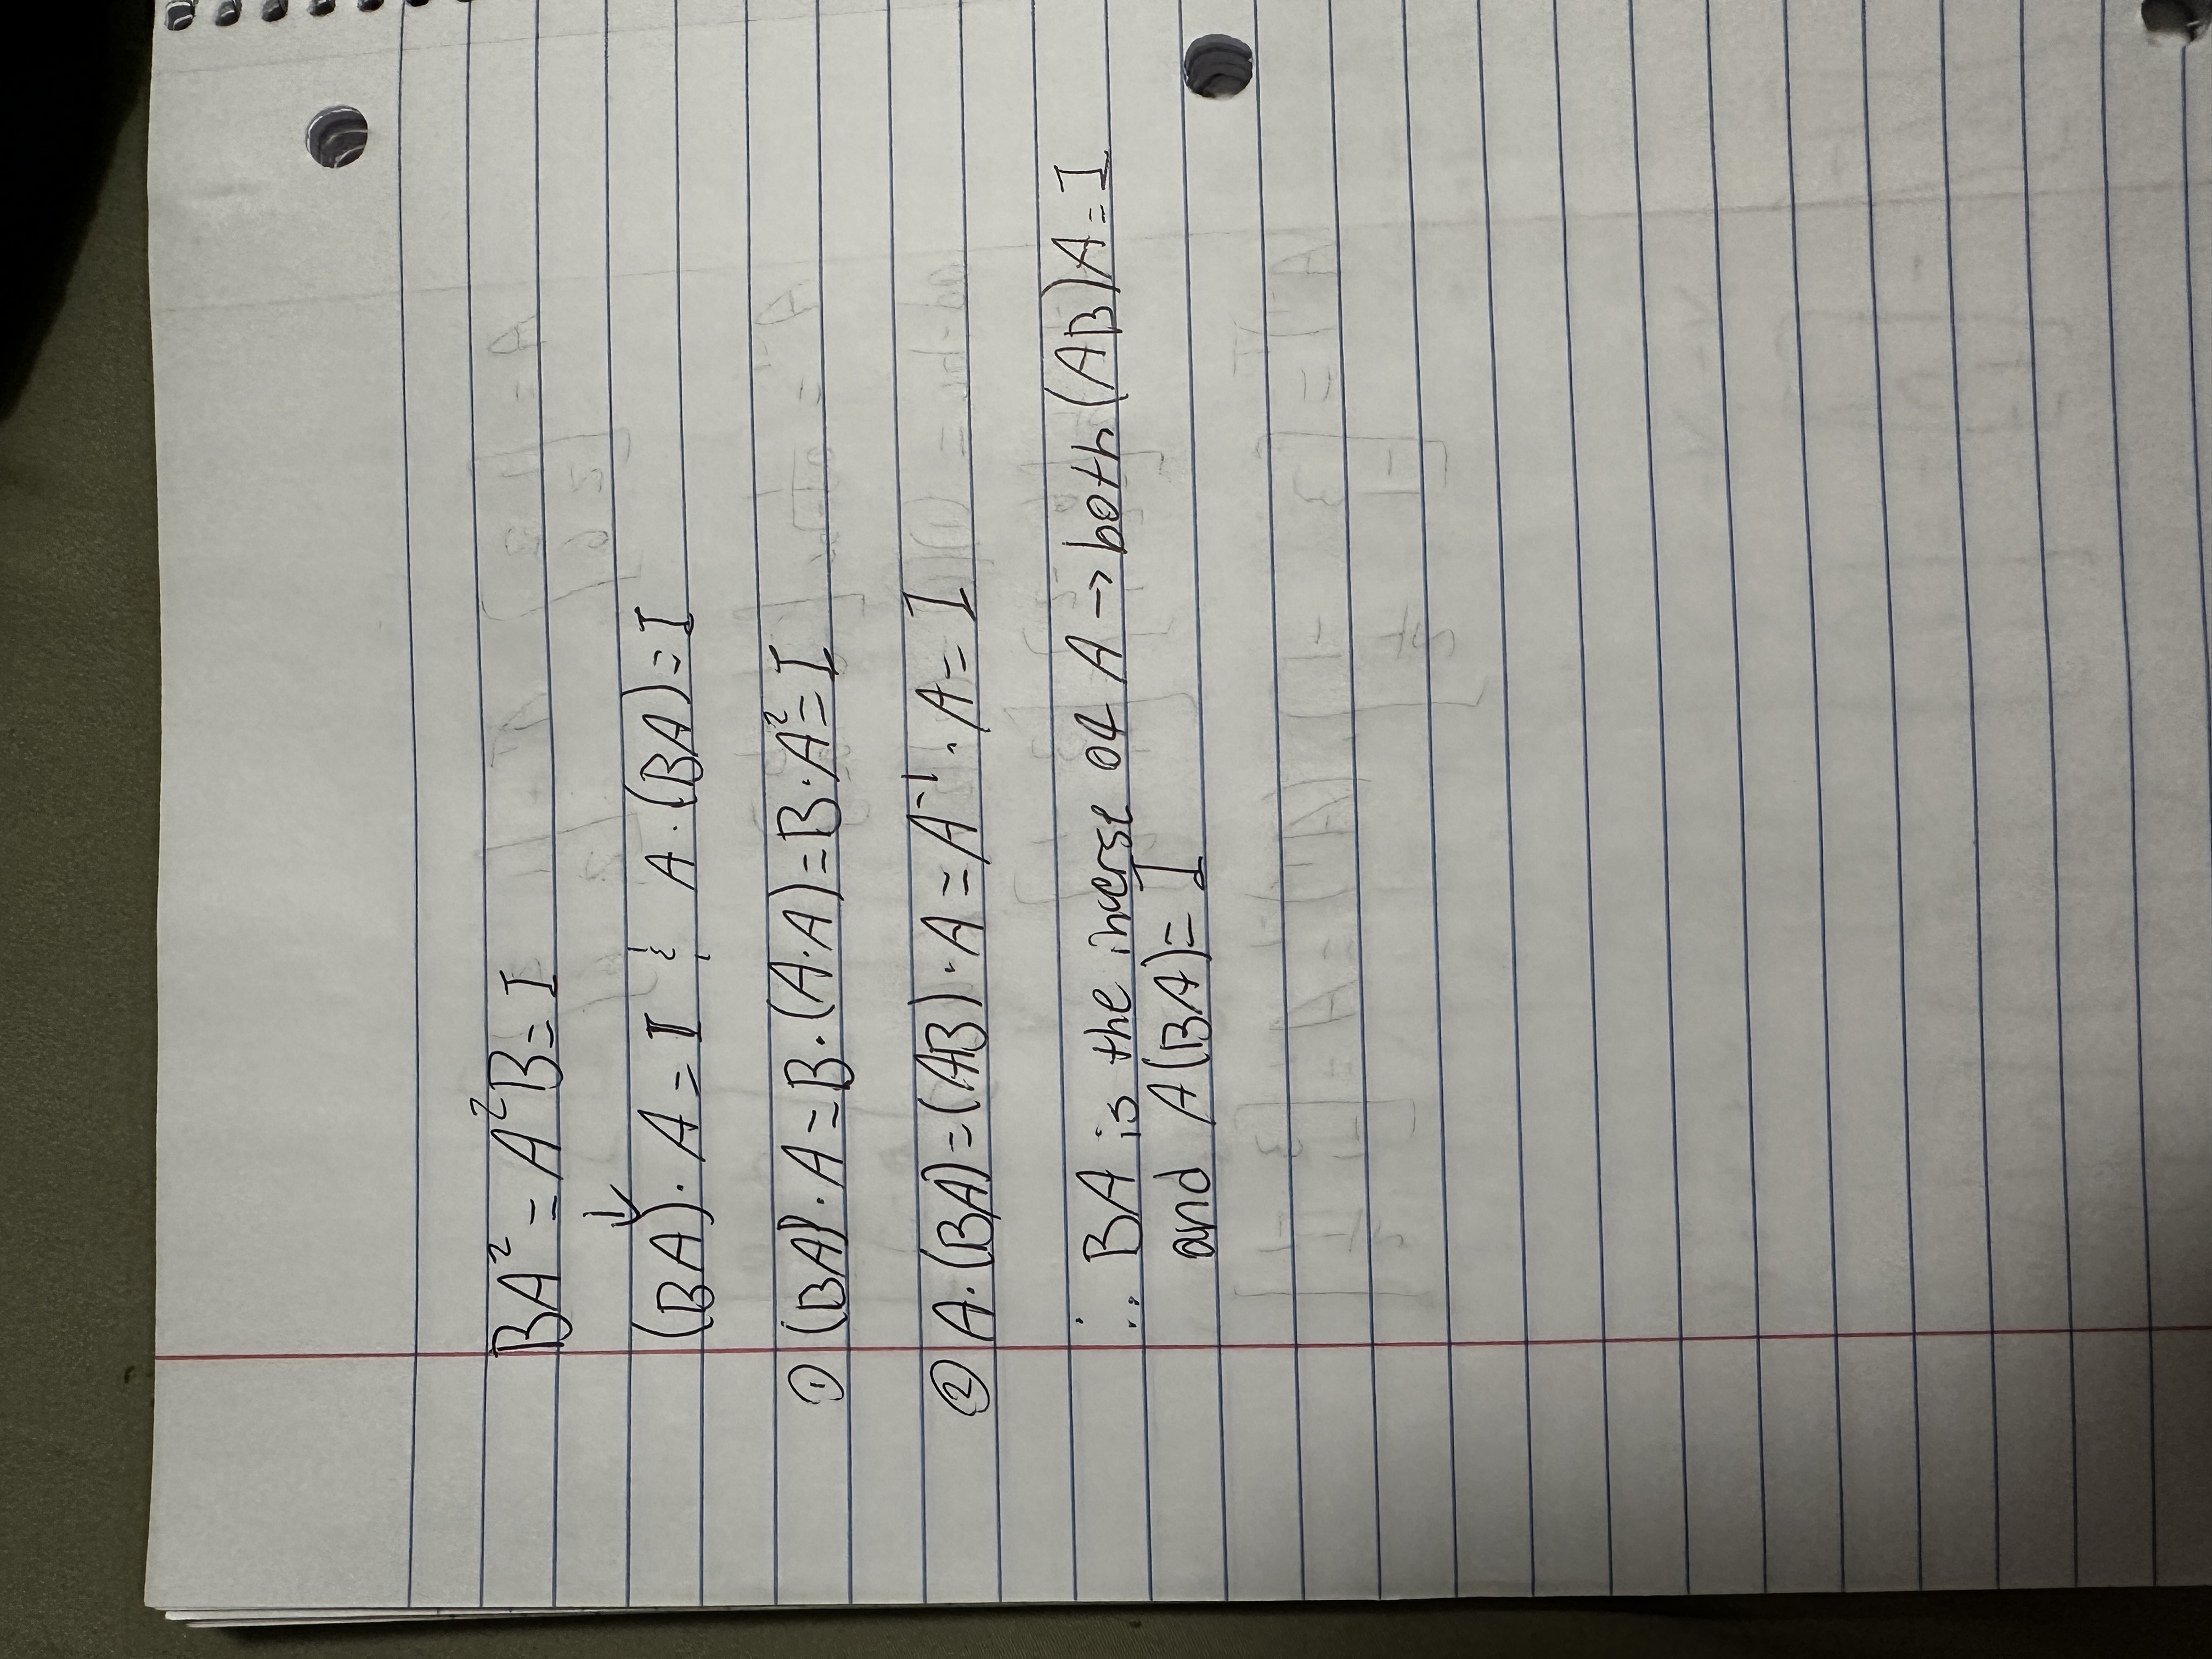 BA² = A²B = I
↓
(BA) · A = I & A · (BA) = I
① (BA) · A = B · (A · A) = B · A² = I
② A · (BA) = (AB) · A = A⁻¹ · A = I
∴ BA is the inverse of A → both (AB)A = I
and A(BA) = I